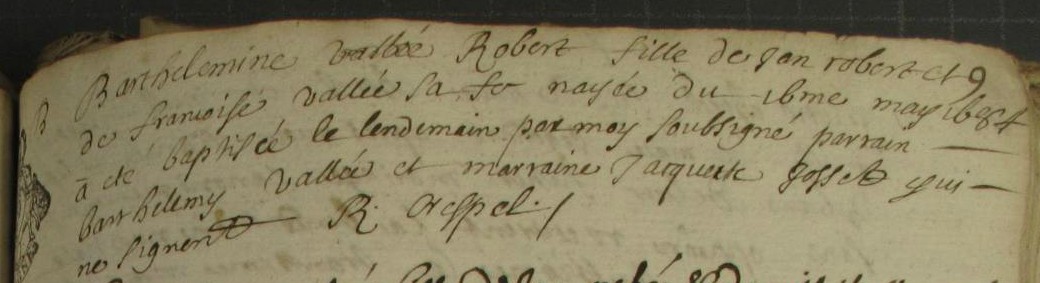 B Barthelemine vallée Robert fille de Jan robert et
de francoise vallée sa fe nayée du 16me may 1684
a eté baptisée le lendemain par moy soubsigné parrain
barthelemy vallée et marraine Jacquette gosset qui
ne signent R. Crespel